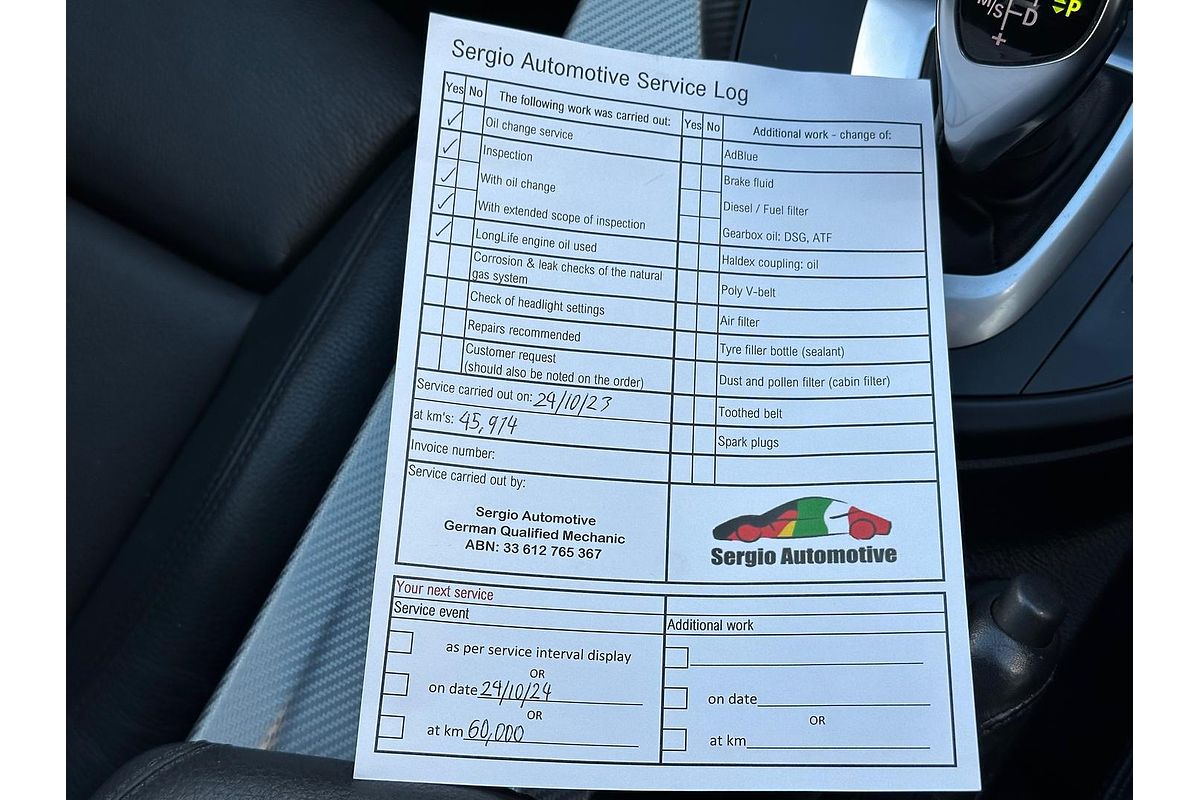 M/S D P
+
Sergio Automotive Service Log
Yes No The following work was carried out:
✓ Oil change service
✓ Inspection
✓ With oil change
✓ With extended scope of inspection
✓ LongLife engine oil used
Corrosion & leak checks of the natural
gas system
Check of headlight settings
Repairs recommended
Customer request
(should also be noted on the order)
Service carried out on: 24/10/23
at km's: 45,974
Invoice number:
Service carried out by:
Sergio Automotive
German Qualified Mechanic
ABN: 33 612 765 367
Yes No Additional work - change of:
AdBlue
Brake fluid
Diesel / Fuel filter
Gearbox oil: DSG, ATF
Haldex coupling: oil
Poly V-belt
Air filter
Tyre filler bottle (sealant)
Dust and pollen filter (cabin filter)
Toothed belt
Spark plugs
Sergio Automotive
Your next service
Service event
as per service interval display
OR
on date 24/10/24
OR
at km 60,000
Additional work
on date
OR
at km